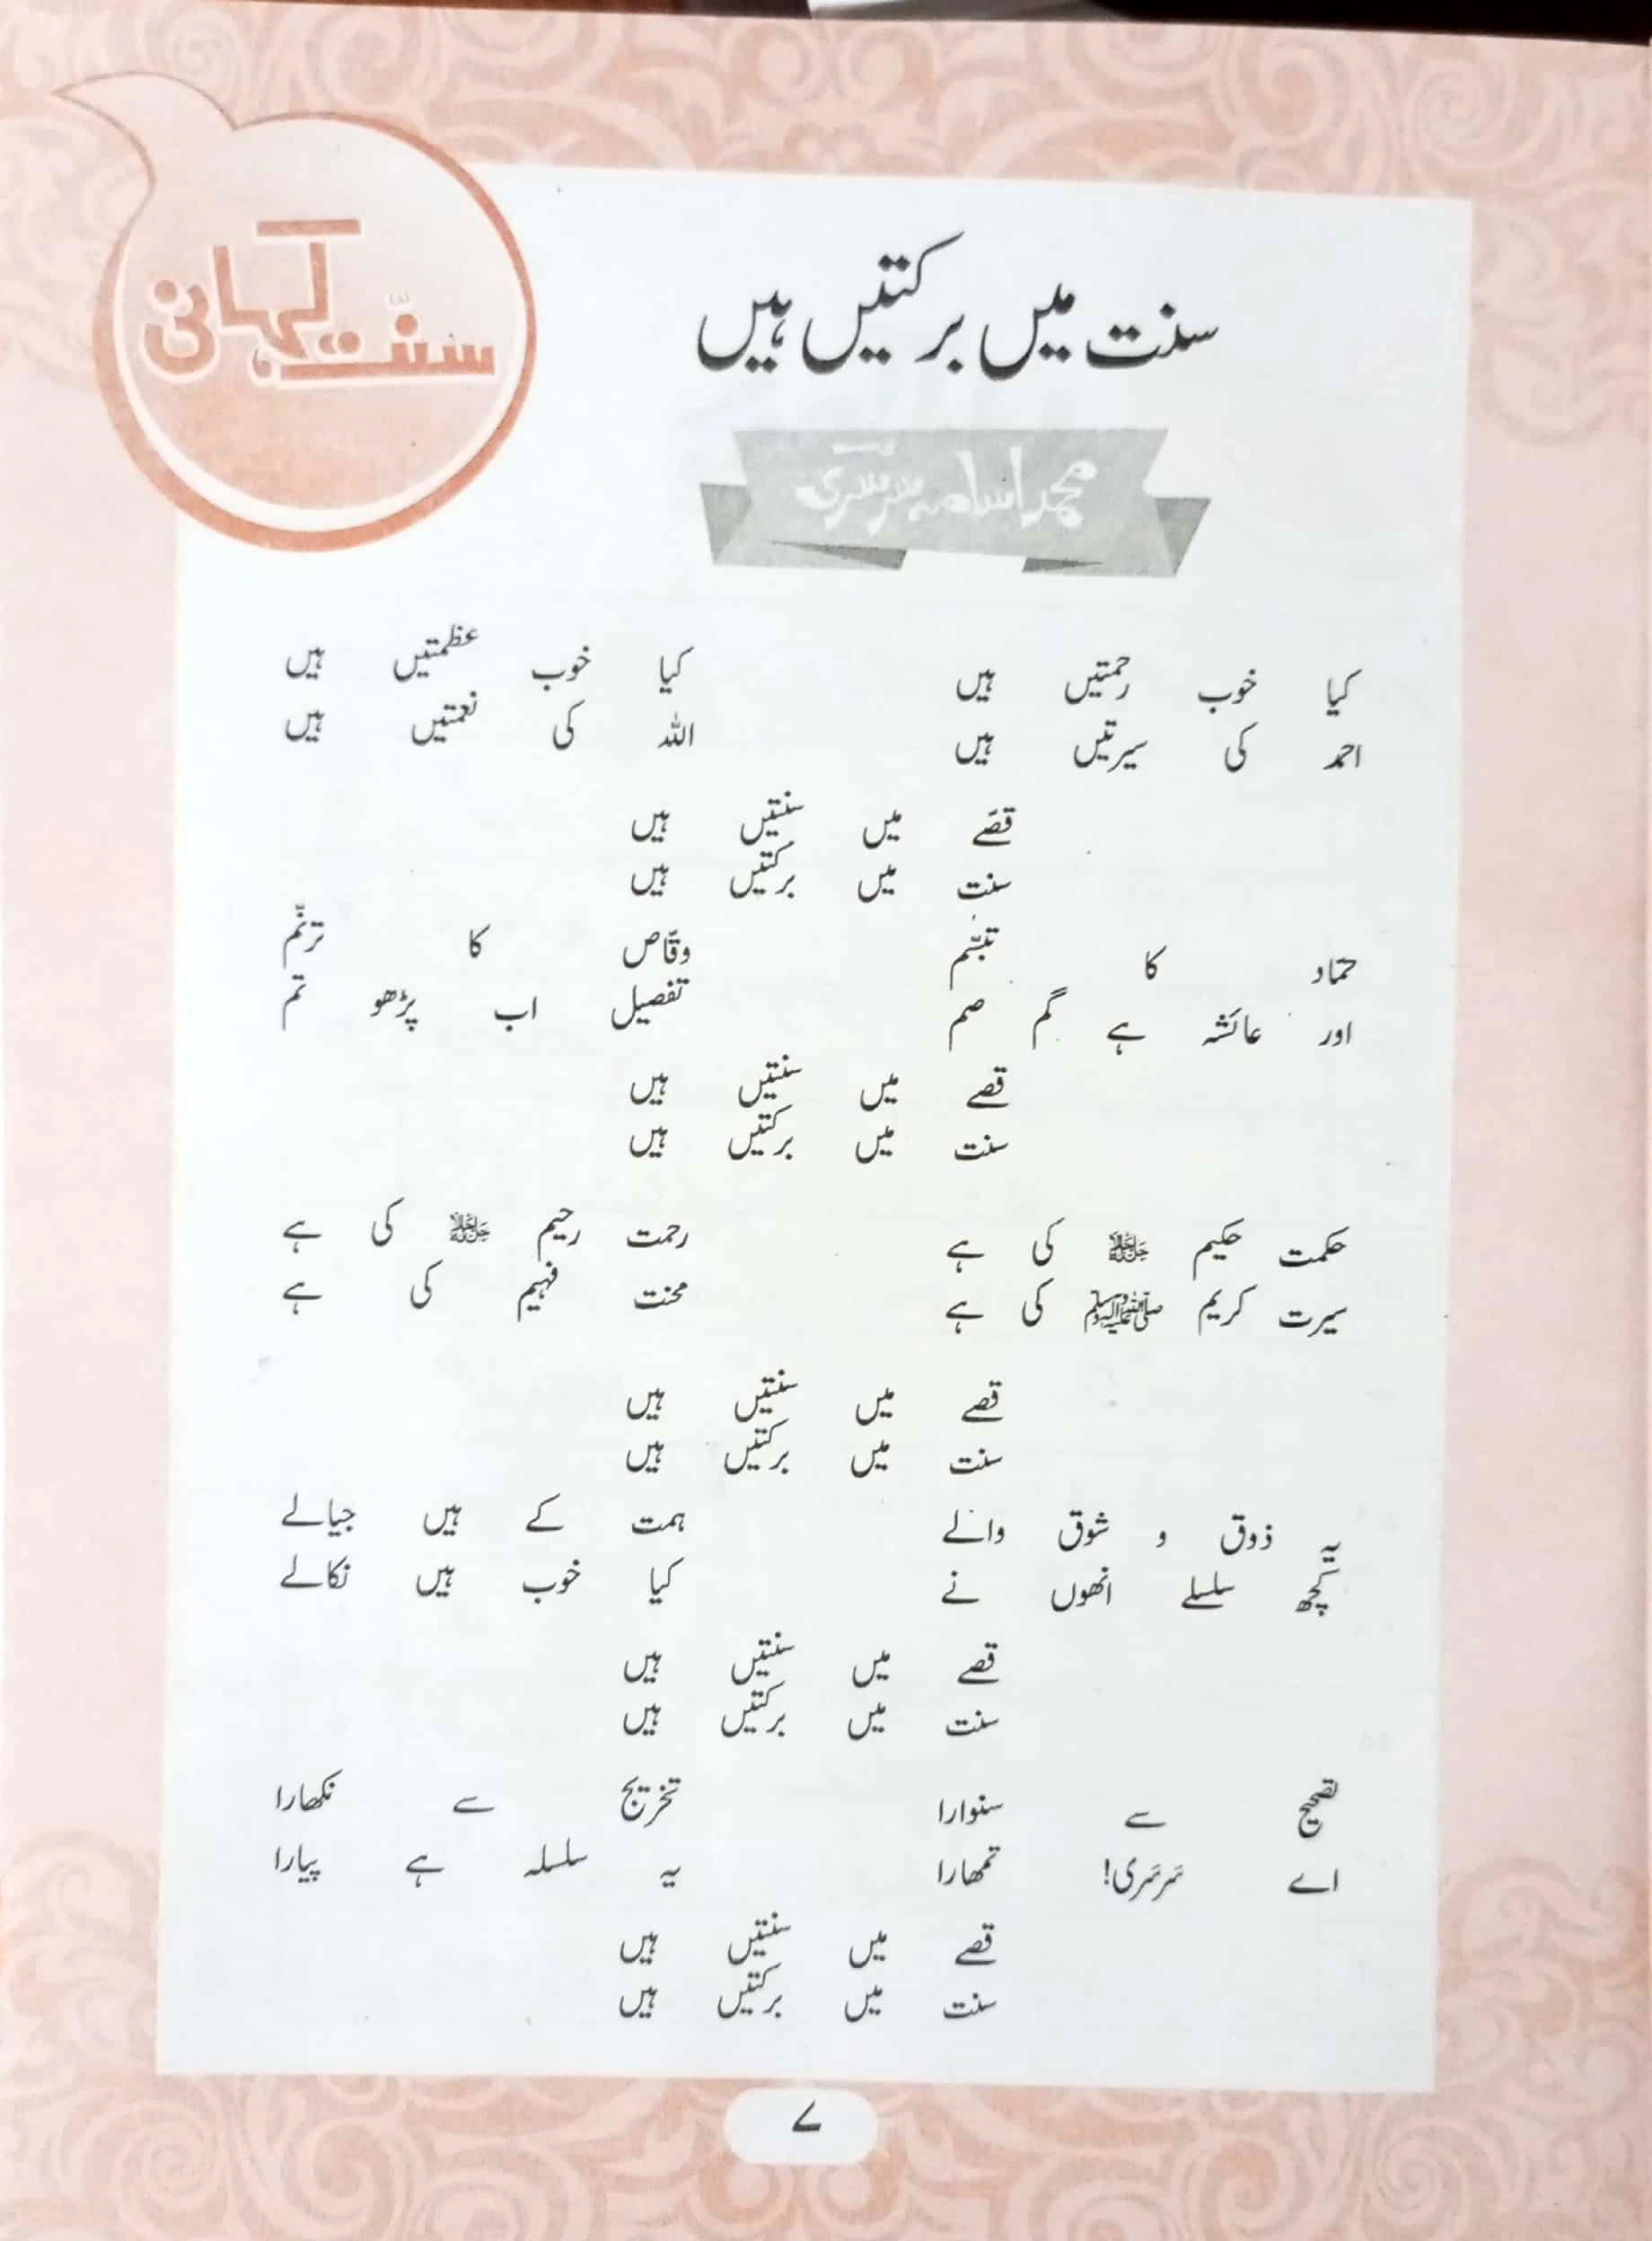 سنّت کہانی
سنت میں برکتیں ہیں
محمد اسامہ سَرسَری
کیا خوب رحمتیں ہیں کیا خوب عظمتیں ہیں
احمد کی سیرتیں ہیں اللہ کی نعمتیں ہیں
قصّے میں سنتیں ہیں
سنت میں برکتیں ہیں
حمّاد کا تبسّم وقّاص کا ترنّم
اور عائشہ ہے گم صم تفصیل اب پڑھو تم
قصے میں سنتیں ہیں
سنت میں برکتیں ہیں
حکمت حکیم ﷻ کی ہے رحمت رحیم ﷻ کی ہے
سیرت کریم ﷺ کی ہے محنت فہیم کی ہے
قصے میں سنتیں ہیں
سنت میں برکتیں ہیں
یہ ذوق و شوق والے ہمت کے ہیں جیالے
کچھ سلسلے انھوں نے کیا خوب ہیں نکالے
قصے میں سنتیں ہیں
سنت میں برکتیں ہیں
تصحیح سے سنوارا تخریج سے نکھارا
اے سَرسَری! تمھارا یہ سلسلہ ہے پیارا
قصے میں سنتیں ہیں
سنت میں برکتیں ہیں
۷